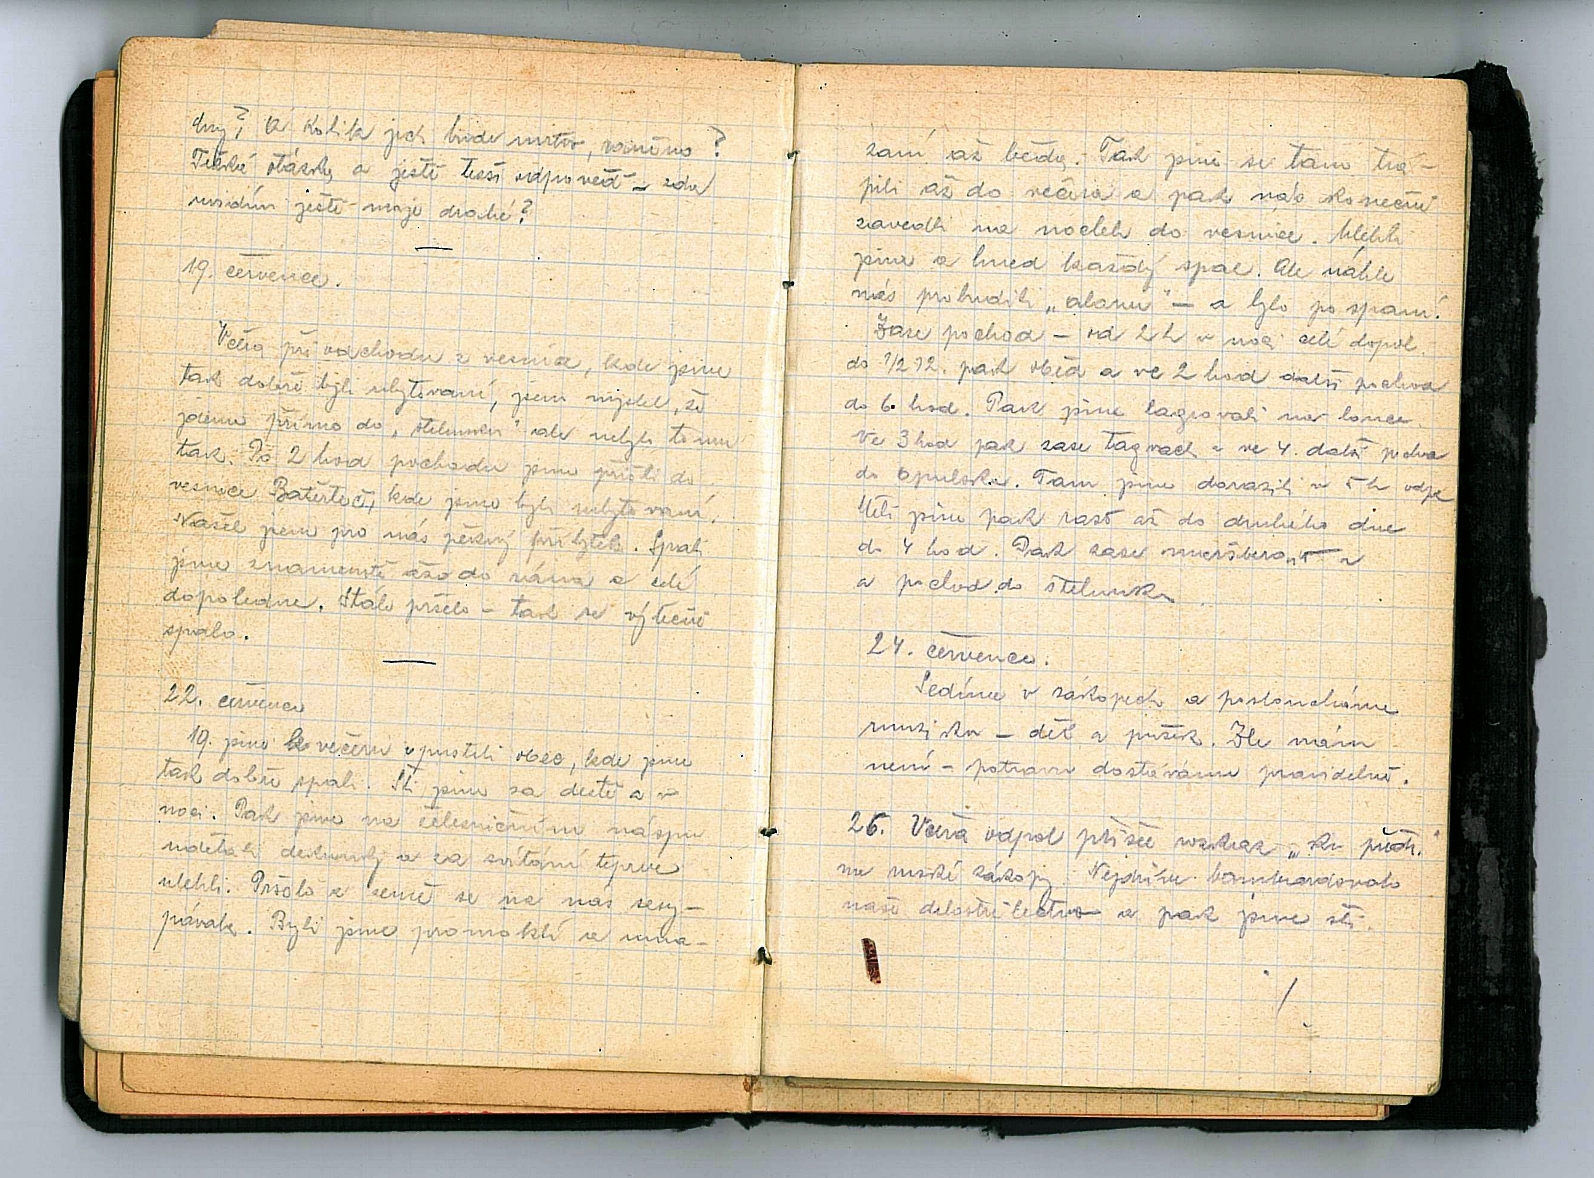 dny? A kolik jich bude mrtvo, raněno?
Těžké otázky a ještě težší odpověď – zda
uvidím ještě moje drahé?
19. července.
Včera při odchodu z vesnice, kde jsme
tak dobře byli ubytovaní, jsem myslel, že
jdeme přímo do „štelunku" ale nebylo tomu
tak. Po 2 hod pochodu jsme přišli do
vesnice kde jsme byli ubytovaní.
Našel jsem pro nás pěkný příbytek. Spali
jsme znamenitě až do rána a celé
dopoledne. Stále pršelo – tak se výtečně
spalo.
22. července
19. jsme k večeru opustili obec, kde jsme
tak dobře spali. Šli jsme za deště a v
noci. Pak jsme na železničním náspu
udělali dekunky a za svítání teprve
ulehli. Pršelo a země se na nás sesy-
pávala. Byli jsme promoklí a uma-
zaní až běda. Tak jsme se tam trá-
pili až do večera a pak nás konečně
zavedli na nocleh do vesnice. Ulehli
jsme a hned každý spal. Ale náhle
nás probudili „alarm" – a bylo po spaní!
Zase pochod – od 2 h v noci celé dopol.
do 1/2 12. pak oběd a ve 2 hod další pochod
do 6. hod. Pak jsme lagrovali na louce.
Ve 3 hod pak zase tagvach a ve 4. další pochod
do Tam jsme dorazili v 5 h odpo
Měli jsme pak rast až do druhého dne
do 4 hod. Pak zase a
a pochod do štelunku
24. července.
Sedíme v zákopech a posloucháme
muziku – děl a pušek. Zle nám
není – potravu dostáváme pravidelně.
26. Včera odpol přišel rozkaz „ku předu"
na ruské zákopy. Nejdříve bombardovalo
naše dělostřelectvo a pak jsme šli.